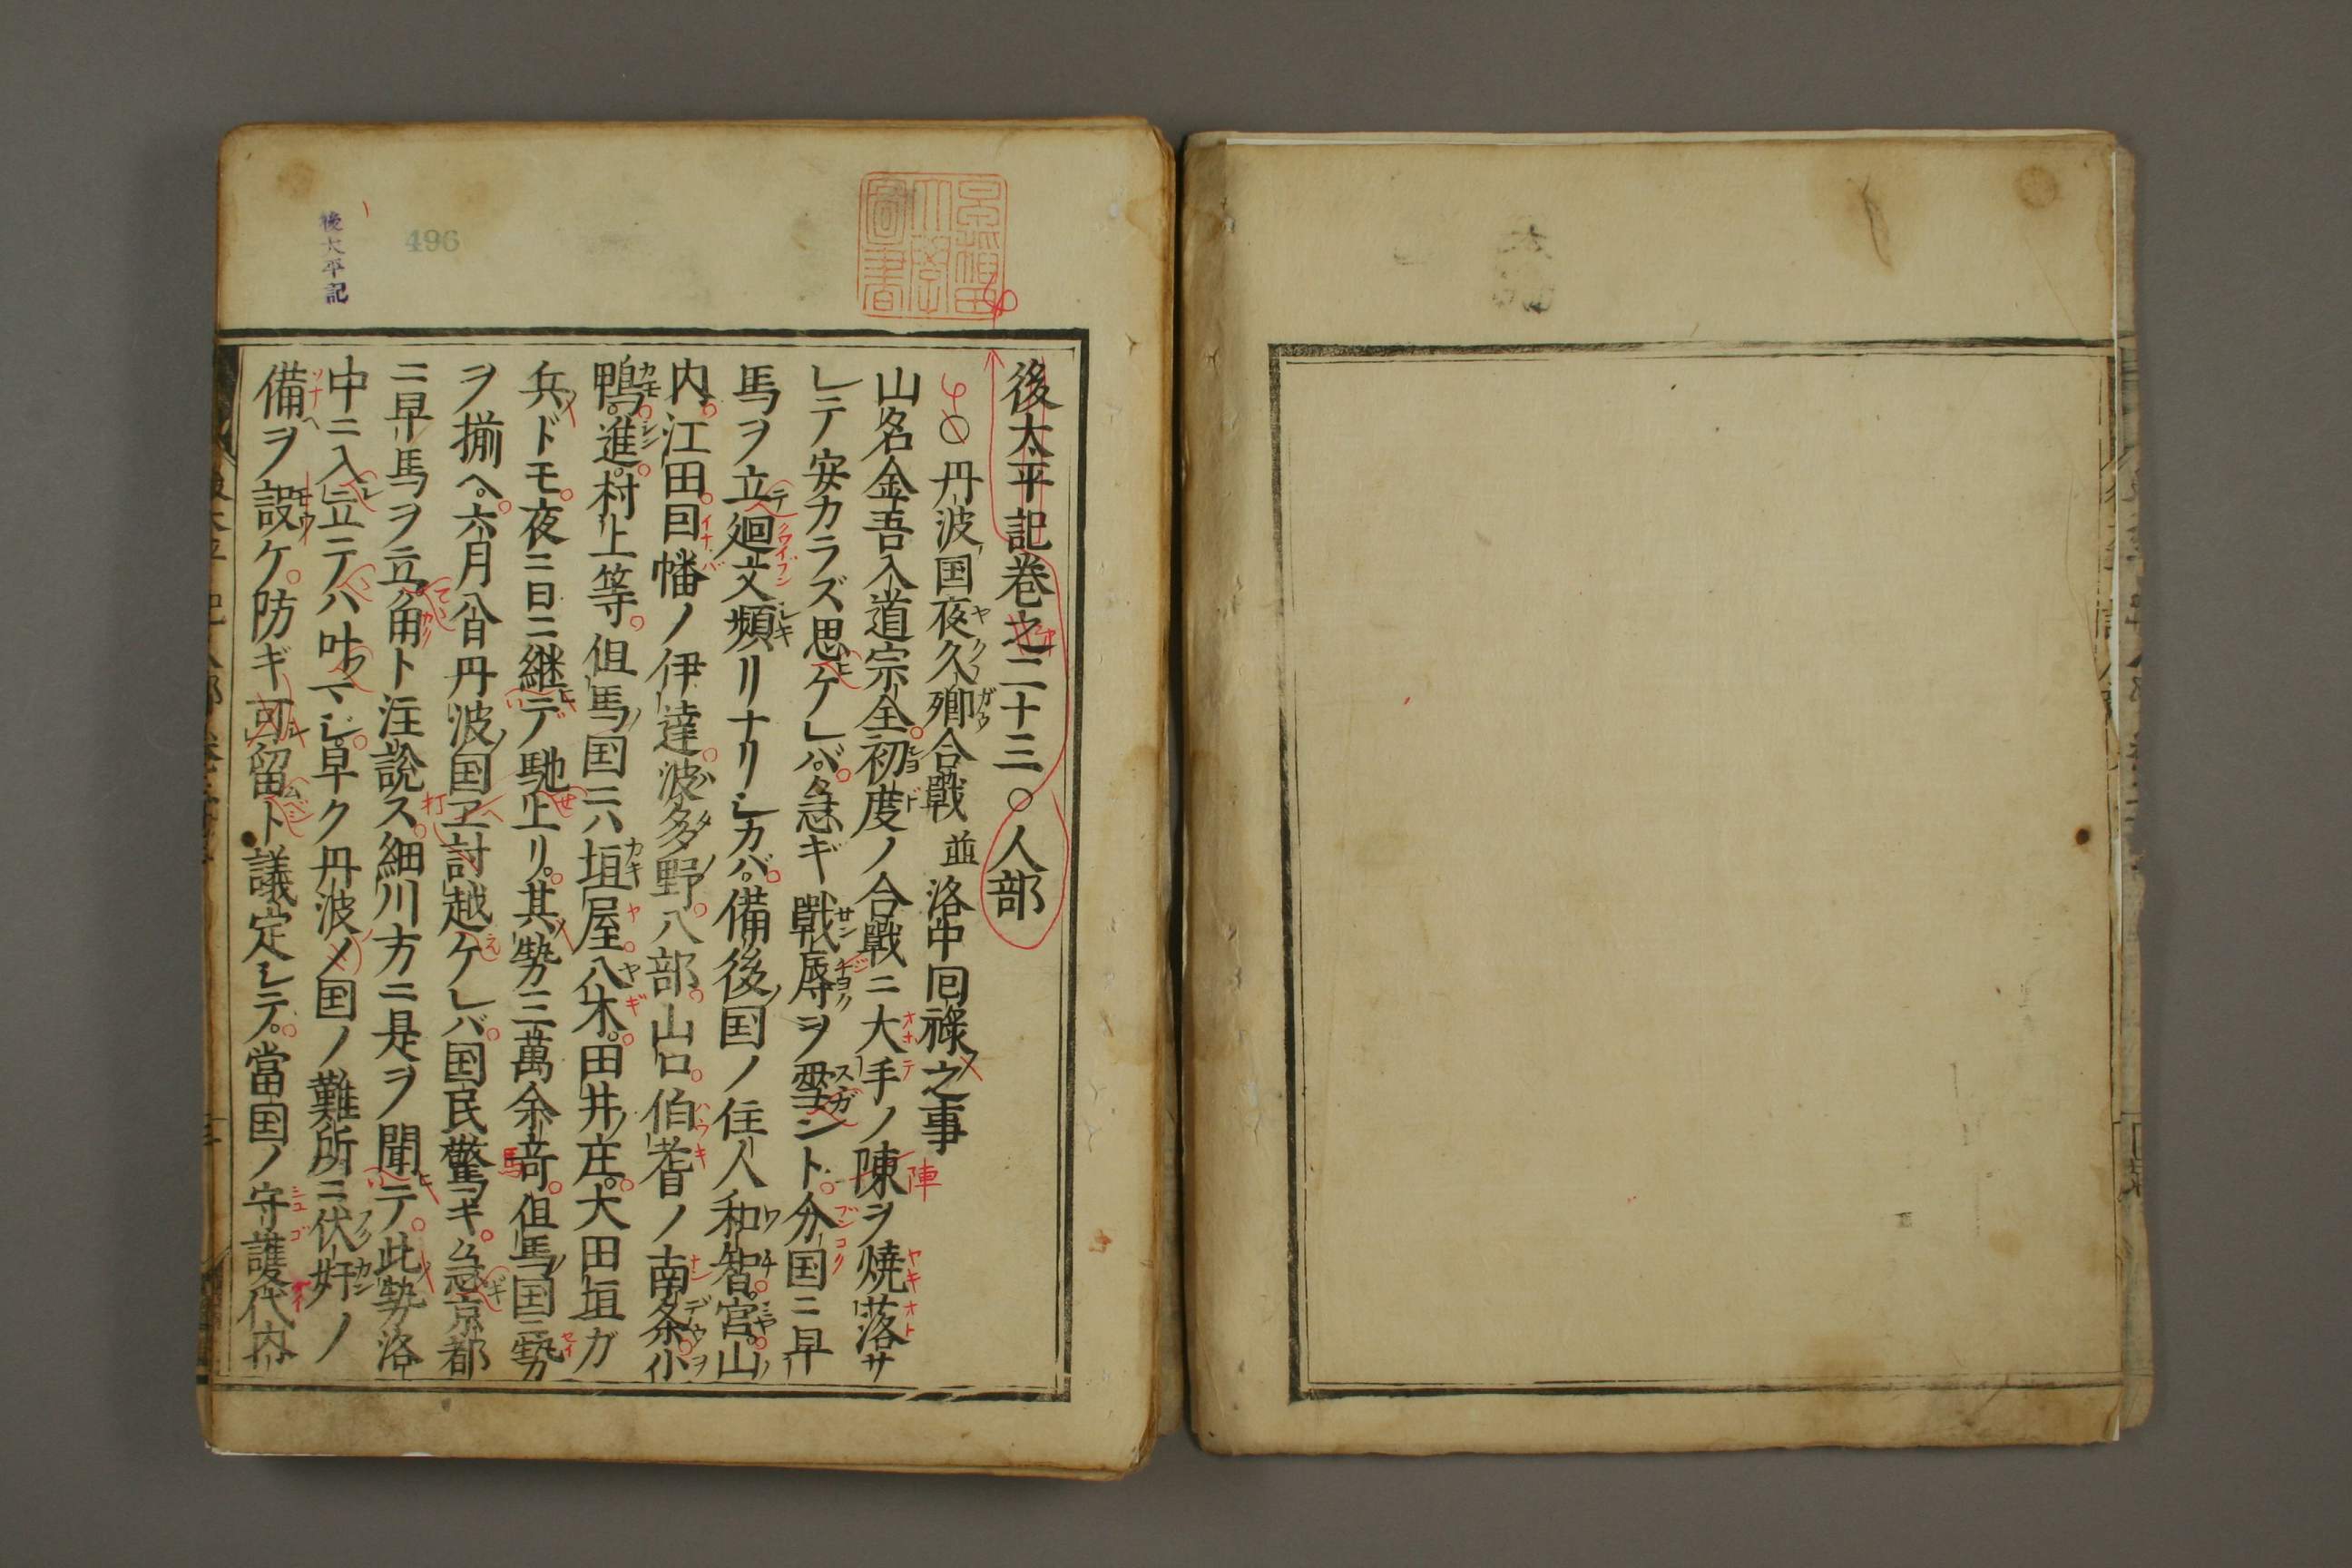 後太平記巻之二十三〇人部
〇丹波国夜久郷合戰並洛中回禄之事
山名金吾入道宗全初度ノ合戰ニ大手ノ陳ヲ焼落サ
レテ安カラズ思ケレバ急ギ戰辱ヲ雪ント分国ニ早
馬ヲ立廻文頻リナリシカバ備後国ノ住人和智宮山
内江田因幡ノ伊達波多野八部山口伯耆ノ南条小
鴨進村上等但馬国ニハ垣屋八木田井庄大田垣ガ
兵ドモ夜三日ニ継デ馳上リ其勢三萬余竒但馬国ニ勢
ヲ揃へ六月八日丹波国エ討越ケレバ国民驚キ急京都
ニ早馬ヲ立角ト注説ス細川方ニ是ヲ聞テ此勢洛
中ニ入立テハ叶マジ早ク丹波ノ国ノ難所ニ伏奸ノ
備ヲ設ケ防ギ可留ト議定シテ當国ノ守護代内
後太平記
496
陣
馬
打